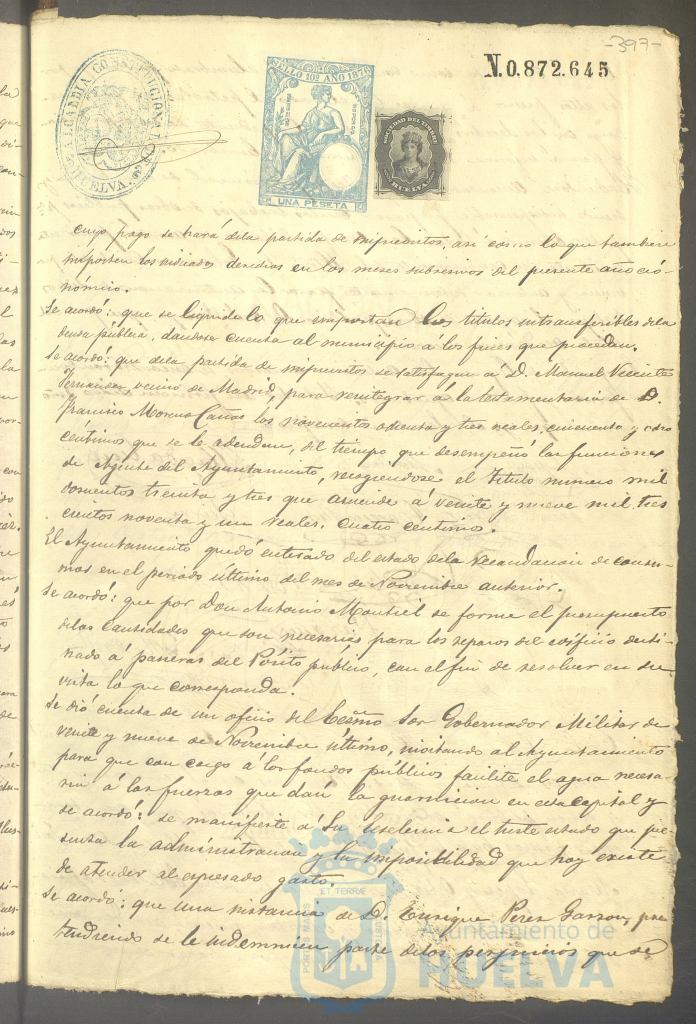 -397-
N.0.872.645
ALCALDIA CONSTITUCIONAL DE HUELVA
SELLO 10º AÑO 1876
UNA PESETA
SOCIEDAD DEL TIMBRE
HUELVA
cuyo pago se hará dela partida de imprevistos, asi como lo que tambien
importen los indicados derechos en los meses subcesivos del presente año eco
nómico.
Se acordó: que se liquide lo que importan los titulos intransferibles dela
deuda pública, dandose cuenta al municipio á los fines que procedan.
Se acordó: que dela partida de imprevistos se satisfagan á D. Manuel Vicente
Fernandez vecino de Madrid, para reintegrar á la testamentaria de D.
Francisco Moreno Cañas los novecientos ochenta y tres reales, cincuenta y ocho
céntimos que se le adeudan, del tiempo que desempeñó las funciones
de Agente del Ayuntamiento, recogiendose el titulo numero mil
doscientos treinta y tres que asciende á veinte y nueve mil, tres
cientos noventa y un reales, cuatro céntimos.
El Ayuntamiento quedó enterado del estado dela recaudacion de consu-
mos en el periodo último del mes de Noviembre anterior.
Se acordó: que por Don Antonio Montiel se forme el presupuesto
delas cantidades que son necesarias para los reparos del edificio desti-
nado á paneras del Pósito público, con el fin de resolver en su
vista lo que corresponda.
Se dió cuenta de un oficio del Ecsmo Sor Gobernador Militar de
veinte y nueve de Noviembre último, invitando al Ayuntamiento
para que con cargo á los fondos públicos facilite el agua necesa-
ria á las fuerzas que dan la guarnicion en esta capital y
se acordó: se manifieste á Su Escelencia el triste estado que pre-
senta la administracion y la imposibilidad que hoy existe
de atender al espresado gasto.
Se acordó: que una instancia de D. Enrique Perez Garzon, pre
tendiendo se le indemnicen parte delos perjuicios que se
ET TERRÆ
PORTUS MARIS
CUSTODIA
Ayuntamiento de
HUELVA